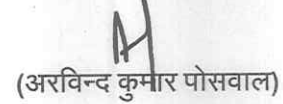 (अरविन्द कुमार पोसवाल)